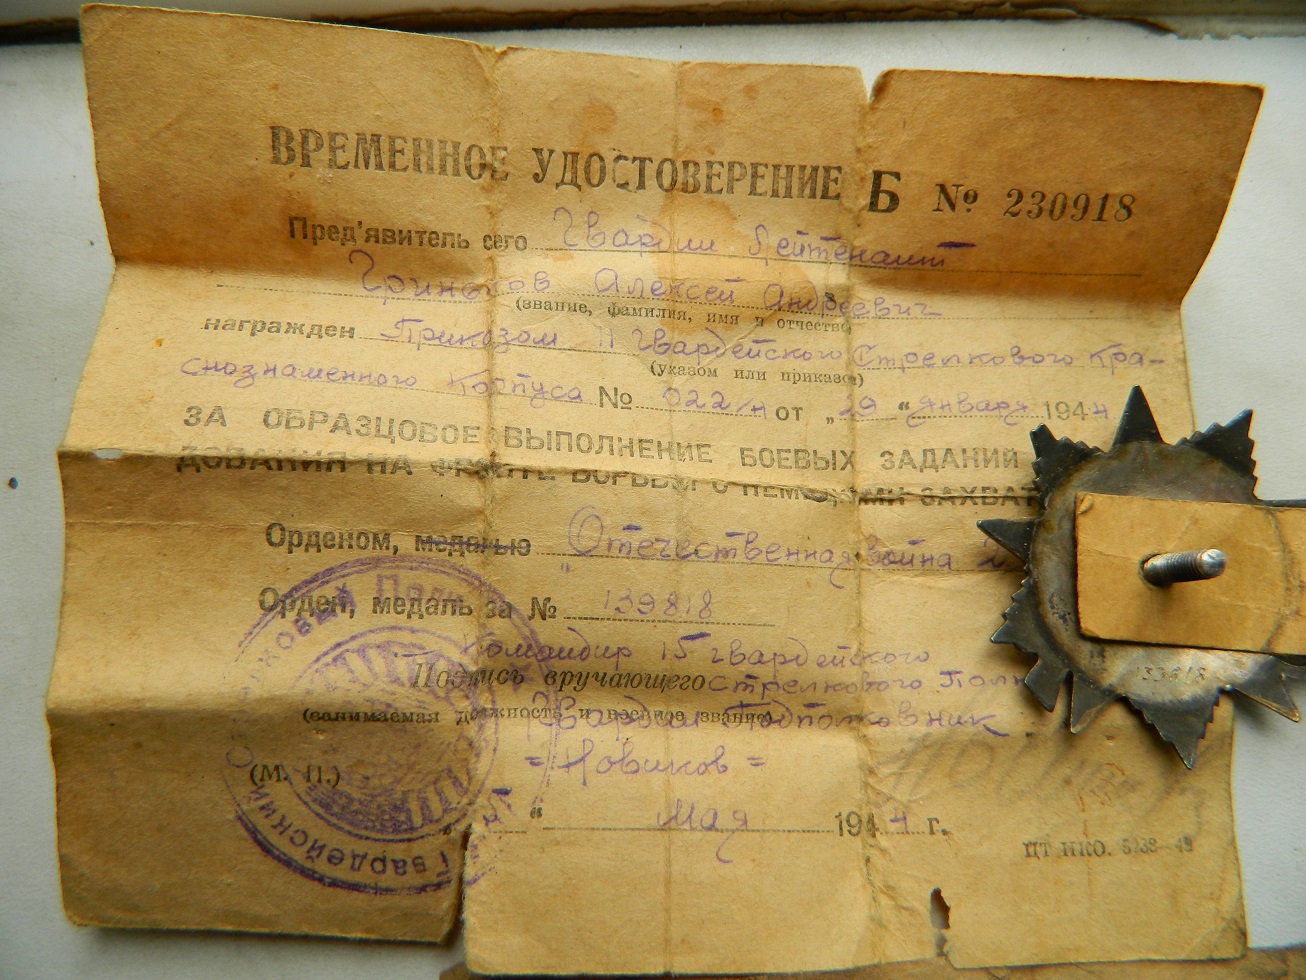 ВРЕМЕННОЕ УДОСТОВЕРЕНИЕ Б № 230918
Пред'явитель сего Гвардии Лейтенант
Гриньков Алексей Андреевич
(звание, фамилия, имя и отчество)
награжден Приказом 11 Гвардейского Стрелкового Кра-
(указом или приказом)
снознаменного Корпуса № 022/н от „29“ января 1944
ЗА ОБРАЗЦОВОЕ ВЫПОЛНЕНИЕ БОЕВЫХ ЗАДАНИЙ
ДОВАНИЯ НА ФРОНТЕ БОРЬБЫ С НЕМЕЦКИМИ ЗАХВАТ
Орденом, медалью "Отечественная война 2
Орден, медаль за № 139818
Командир 15 гвардейского
Подпись вручающего Стрелкового Полк
(занимаемая должность и военное звание)
Гвардии Подполковник
= Новиков =
(М. П.)
“ Мая 1944 г.
ЦТ НКО.
Гвардейский Стрелковый Полк